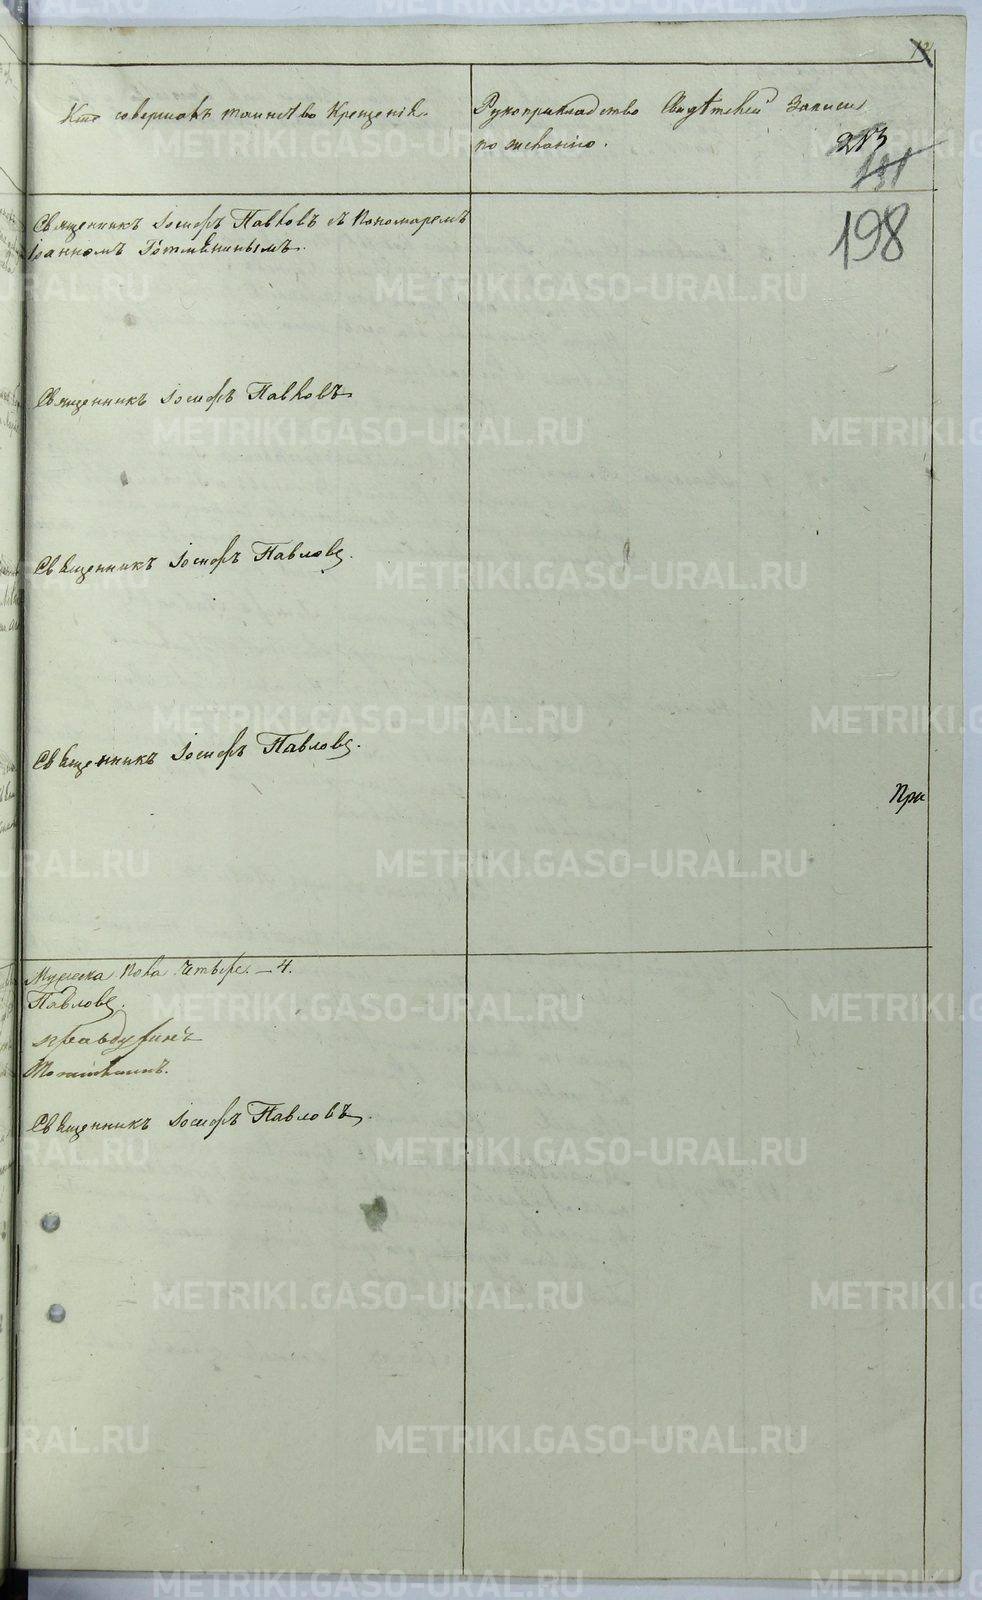 12
Кто совершалъ таинство Крещенія.
Рукоприкладство Свидѣтелей Записи
по желанію.
213
191
198
Священникъ Іосифъ Павловъ съ Пономаремъ
Іоанномъ
Священникъ Іосифъ Павловъ
Священникъ Іосифъ Павловъ.
Священникъ Іосифъ Павловъ.
При
Мужеска пола четыре. — 4.
Павловъ.
Священникъ Іосифъ Павловъ.
METRIKI.GASO-URAL.RU